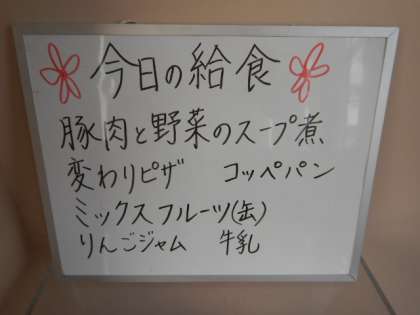 今日の給食
豚肉と野菜のスープ煮
変わりピザ　コッペパン
ミックスフルーツ(缶)
りんごジャム　牛乳